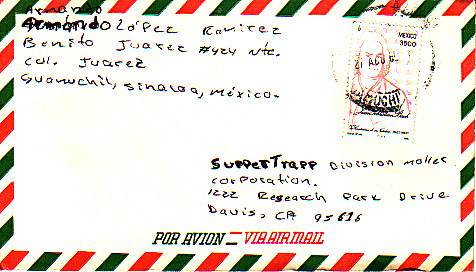 Armando
Armando López Ramirez
Benito Juarez #424 Nte.
Col. Juarez
Guamuchil, Sinaloa, México.
MEXICO
3500
21 AGO
SUPPERTRAPP Division Moller
Corporation.
1222 Research Park Drive
Davis, CA 95616
POR AVION – VIA AIR MAIL